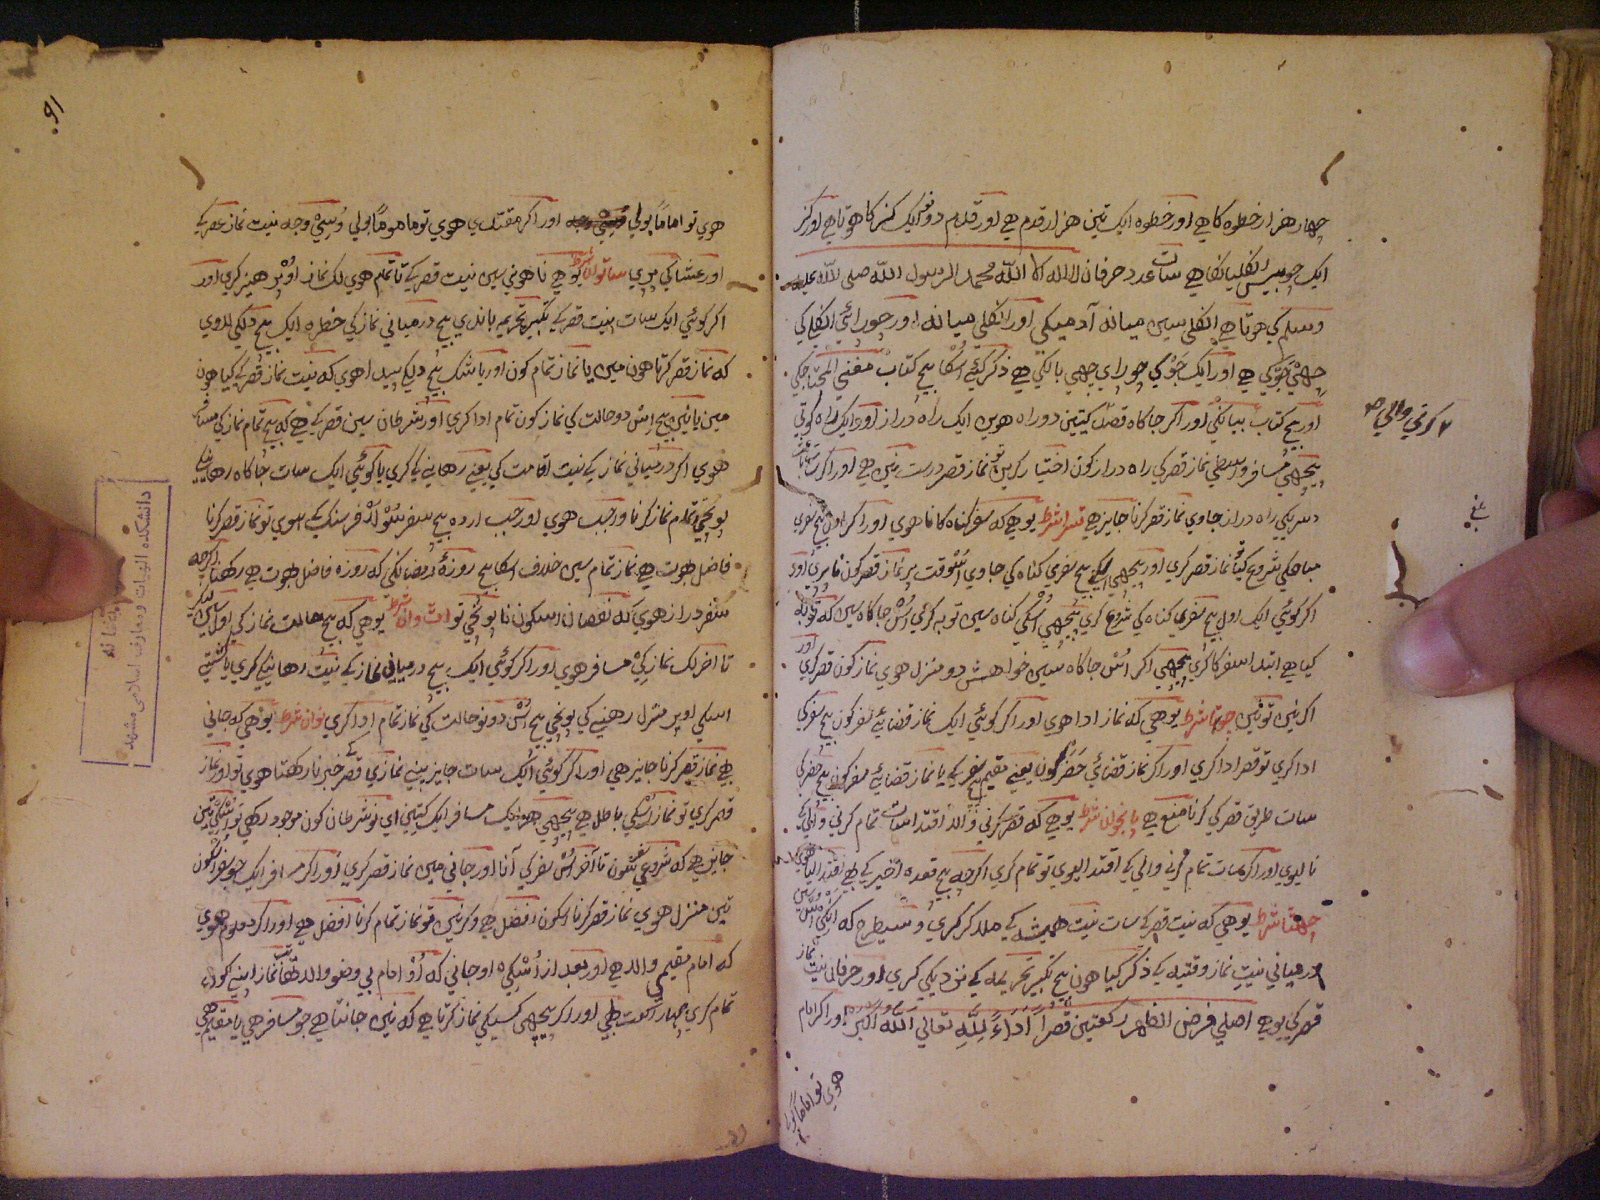 چهار هزار خطوه کا هے اور خطوه ایک تین هزار قدم هے اور قدم دو نو ایک کز کا هوتا هے اور کز
ایک چوبیس انکلیانکا هے سات عدد حرفان لا اله الا الله محمد الرسول الله صلی الله علیه
وسلم کي هوتا هے انکلي سین میانه آدمیکي اور انکلي میانه اور چورائي انکلي کي
چهی جوکي هے اور ایک جوکي چوراي چهی بالکي هے ذکر کئے اسکا بیچ کتاب مغني المحتاج کي
اور بیچ کتاب اور اکر جا کاه قصد کیتین دو راه هوین ایک راه دراز اور ایک راه کوتي
پیچهي مسافر واسطي نماز قصر کي راه دراز کون اختیار کرین تو نماز قصر درست نهین هے اور اکر
دسریکي راه دراز جاوي نماز قصر کرنا جایز هے تسرا شرط یو هے که سفر کناه کا نا هوي اور اکر اول بیچ سفري
مباحکي شروع کیتي نماز قصر کري اور پیچهي بیچ سفري کناه کي جاوي اسوقت پر نماز قصر کون نا کري اور
اکر کوئي ایک اول بیچ سفري کناه کي شروع کري پیچهي اسکي کناه سین توبه کري اس جا کاه سین که توبه
کیا هے ابتدا سفر کا کري پیچهي اکر اس جا کاه سین خواهش دو منزل هوي نماز کون قصر کري اور
اکر نین تو نین چوتها شرط یو هي که نماز ادا هوي اور اکر کوئي ایک نماز قضائے سفر کون بیچ سفر کي
ادا کري تو قصر ادا کري اور اکر نماز قضائي حضر کون یعنے مقیم یا نماز قضائے سفر کون بیچ حضر کي
سات طریق قصر کي کرنا منع هے پانچوان شرط یو هے که قصر کرنی والا اقتدا سات تمام کرني والي کي
نا لیوي اور اکر سات تمام کرني والي کے اقتدا لیوي تو تمام کري اکرچه بیچ قعده اخیر کے اقتدا لیا هوي
چهتا شرط یو هي که نیت قصر کے سات نیت همیشه کے ملا کر کري و سیطرح که
درمیاني نیت نماز وقتیه کے ذکر کیا هون بیچ تکبیر تحریمه کے نزدیکي کري اور حرفان نیت نماز
قصر کي یو هے اصلي فرض الظهر رکعتین قصرا اداء لله تعالی الله اکبر اور اکر امام
هوي تو اماما بولي
کرني والي
هوي تو اماما بولي اور اکر مقتدي هوي تو ماموما بولي وسیی وجه نیت نماز عصر کے
اور عشا کي پري ساتوان شرط یو هے نا هوني سین نیت قصر کے تا تمام هوي لک نماز اوپر هیز کري اور
اکر کوئي ایک سات نیت قصر کے تکبیر تحریمه باندي بیچ درمیاني نماز کي خطره ایک بیچ دلکي لاوي
که نماز قصر کرتا هون مین یا نماز تمام کون اور یا شک بیچ دلکي پیدا هوي که نیت نماز قصر کے کیا هون
مین یا نین بیچ اس دو حالت کي نماز کون تمام ادا کري اور شرطان سین قصر کے هے که بیچ تمام نماز کي مسافر
هوي اکر درمیاني نماز کے نیت اقامت کي یعنے رهانے کي کري یا کوئي ایک سات جا کاه رهانے
پونچي تمام نماز کرنا واجب هوي اور جب اراده بیچ سفر سو لا فرسنک کے هوي تو نماز قصر کرنا
فاضل بهوت هے نماز تمام سین خلاف اسکا بیچ روزهٔ رمضانکي که روزه فاضل بهوت هے رکهنا اکرچه
سفر دراز هوي که نقصان اسکون نا پونچي تو اتوان شرط یو هي که بیچ حالت نماز کي اول سین لیکر
تا آخر لک نماز کي مسافر هوي اور اکر کوئي ایک بیچ درمیاني نماز کے نیت رهانیکي کري یا کشتي
اسکي اوپر منزل رهنیکي کي پونچي بیچ اس دونو حالت کي نماز تمام ادا کري نوان شرط یو هي که جاني
هے نماز قصر کرنا جایز هي اور اکر کوئي ایک سات جایز پنے نمازي قصر کے خبر نا رکهتا هوي تو اور نماز
قصر کري تو نماز اسکي باطل هے پیچهي ایک مسافر ایک کیتین اي نو شرطان کون موجود رکهي تو اسکي تین
جایز هے که شروعي سفر سون تا آخر اس سفر کي آنا اور جاني مین نماز قصر کري اور اکر مسافر ایک جو سفر اسکون
تین منزل هوي نماز قصر کرنا اسکون افضل هے و کر نین تو نماز تمام کرنا افضل هے اور اکر معلوم هوي
که امام مقیمي والا هے اور بعد از اسکي او جاني که او امام بي وضو والا تها تب نماز اپنے کون
تمام کري چهار رکعت طهي اور اکر پیچهي کسیکي نماز کرتا هے که نین جانتا هے جو مسافر هي یا مقیم هي
دانشکده الهیات ومعارف اسلامی مشهد
۹۱